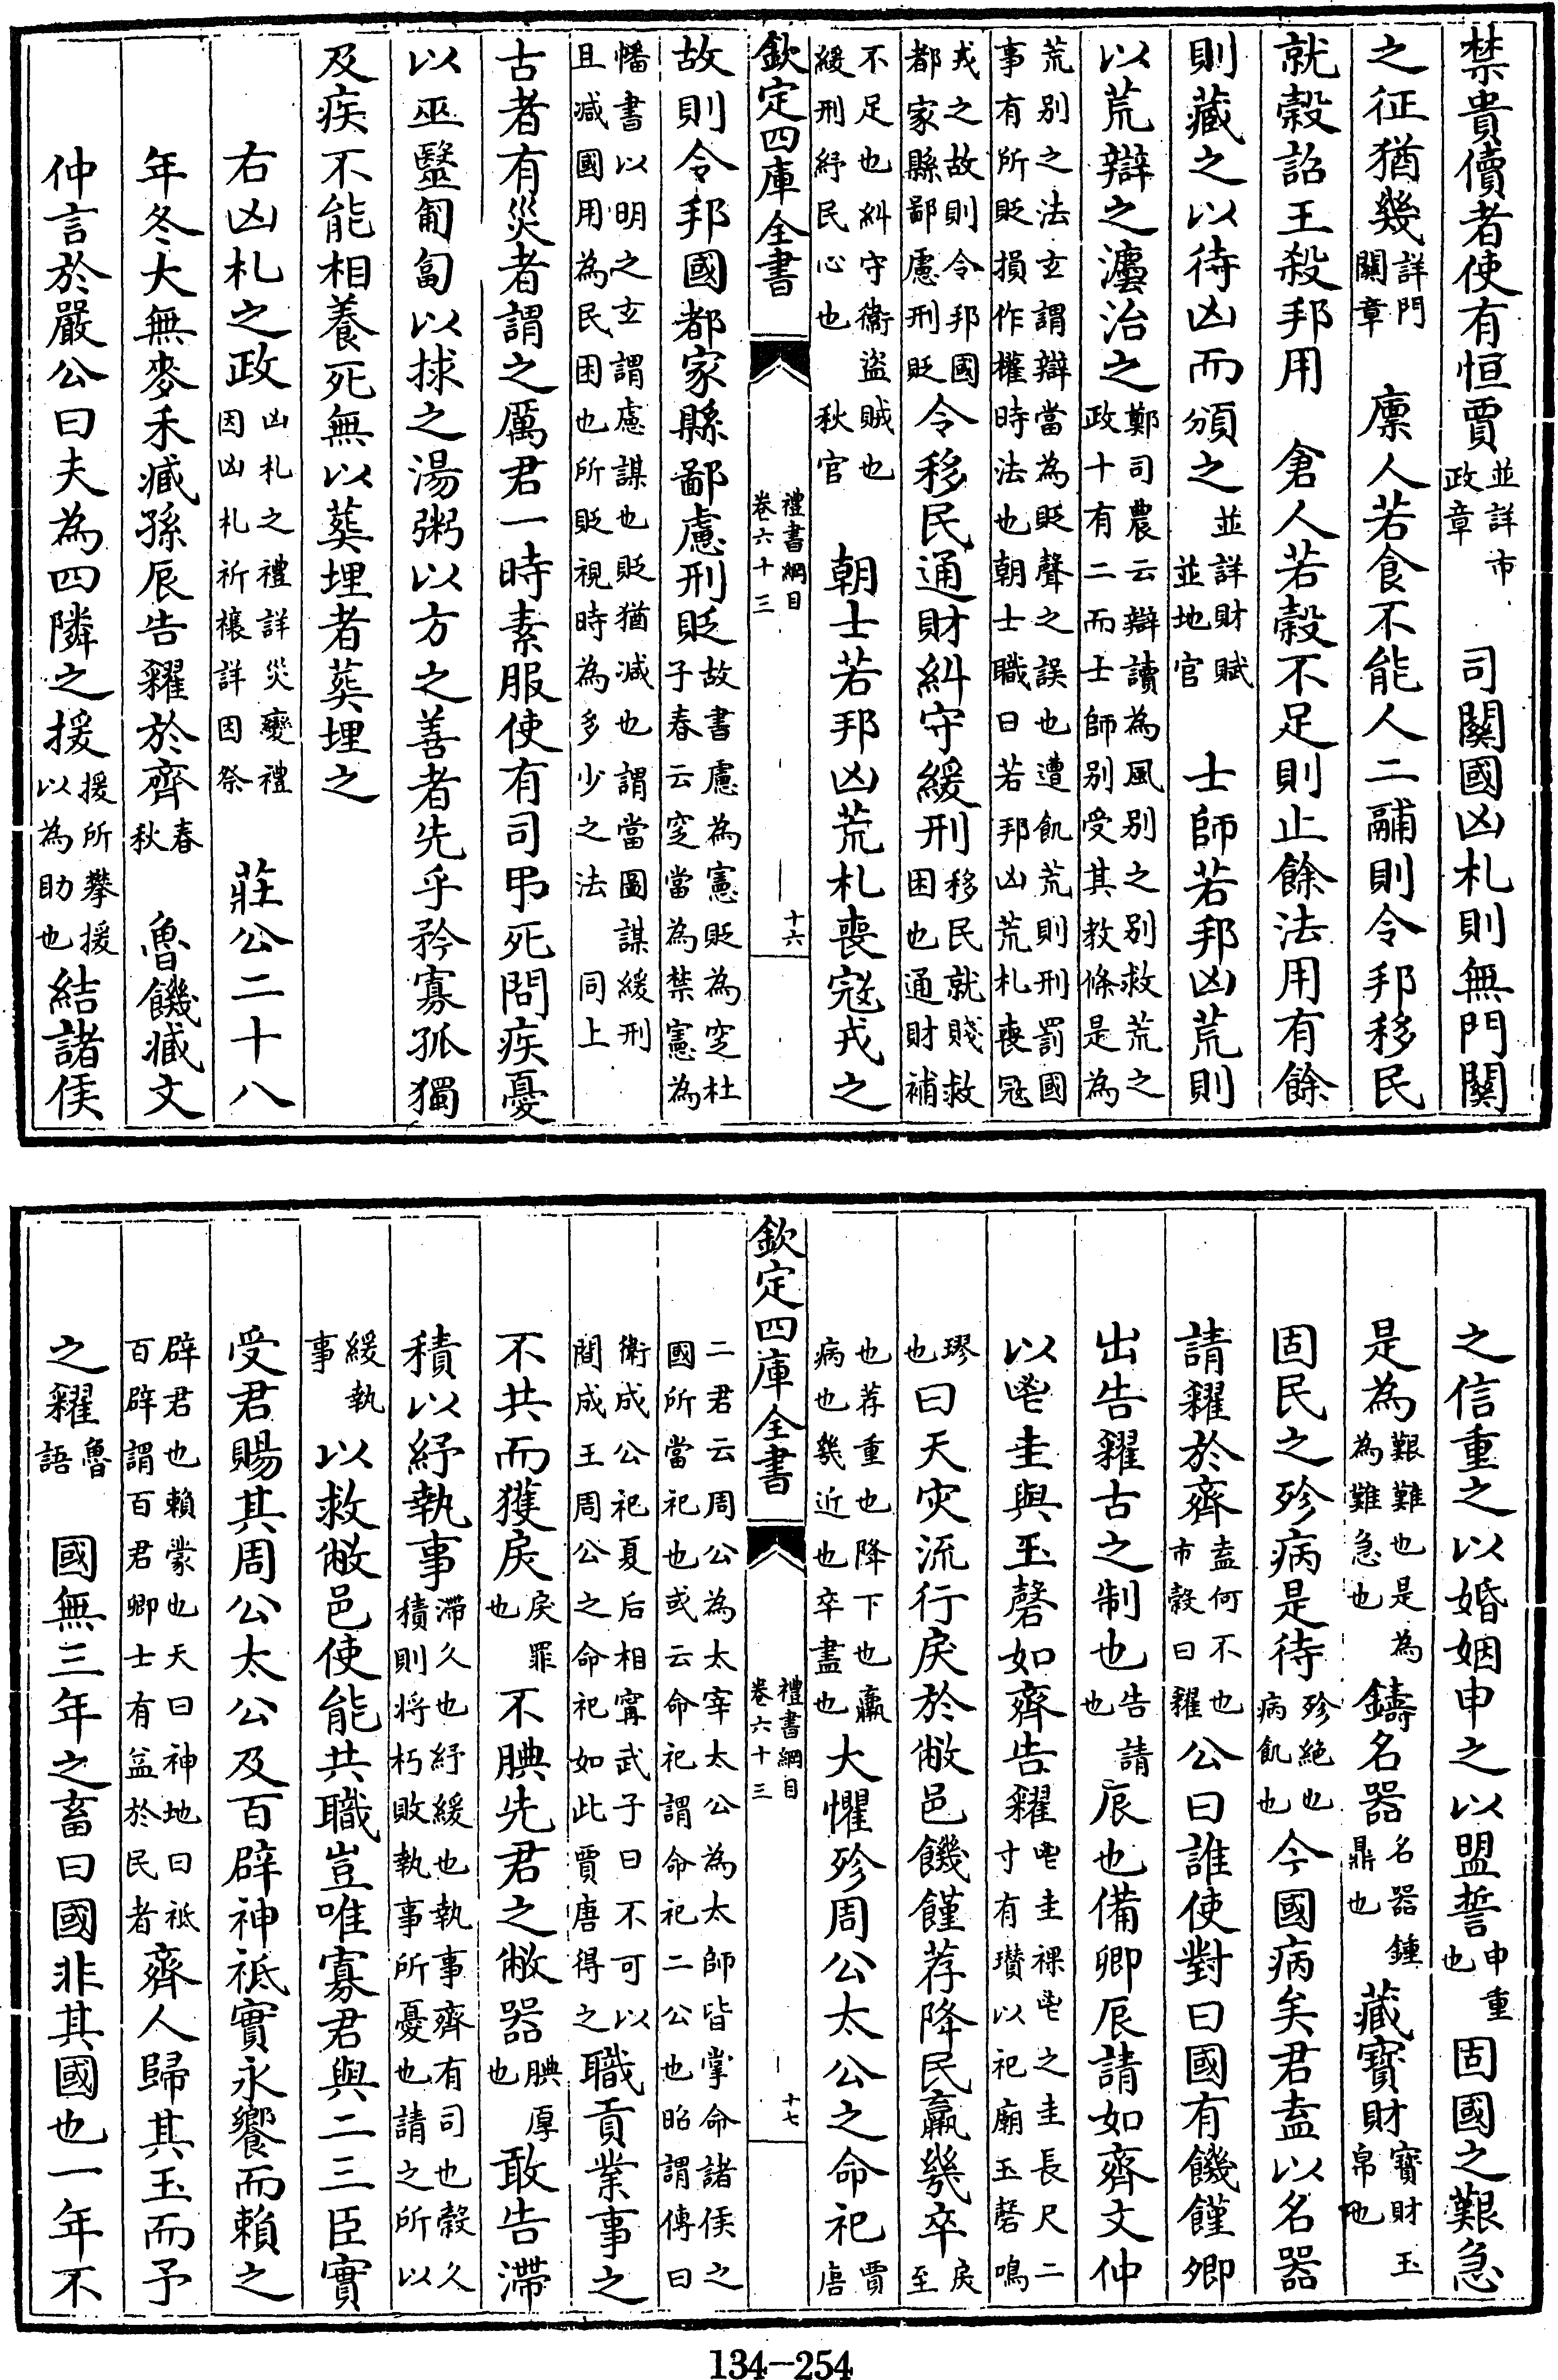 禁貴儥者使有恒賈並詳市政章 司關國凶札則無門關
之征猶幾詳門關章 廩人若食不能人二鬴則令邦移民
就穀詔王殺邦用 倉人若穀不足則止餘法用有餘
則藏之以待凶而頒之並詳財賦並地官 士師若邦凶荒則
以荒辯之灋治之鄭司農云辯讀為風别之别救荒之政十有二而士師别受其教條是為
荒别之法玄謂辯當為貶聲之誤也遭飢荒則刑罰國事有所貶損作權時法也朝士職曰若邦凶荒札喪寇
戎之故則令邦國都家縣鄙慮刑貶令移民通財糾守緩刑移民就賤救困也通財補
不足也糾守衞盜賊也緩刑紓民心也 秋官 朝士若邦凶荒札喪寇戎之
欽定四庫全書 禮書綱目 卷六十三 十六
故則令邦國都家縣鄙慮刑貶故書慮為憲貶為窆杜子春云窆當為禁憲為
幡書以明之玄謂慮謀也貶猶减也謂當圖謀緩刑且减國用為民困也所貶視時為多少之法 同上
古者有災者謂之厲君一時素服使有司弔死問疾憂
以巫毉匍匐以捄之湯粥以方之善者先乎矜寡孤獨
及疾不能相養死無以葬埋者葬埋之
右凶札之政凶札之禮詳災變禮因凶札祈禳詳因祭 莊公二十八
年冬大無麥禾臧孫辰告糴於齊春秋 魯饑臧文
仲言於嚴公曰夫為四隣之援援所攀援以為助也結諸侯
之信重之以婚姻申之以盟誓申重也固國之艱急
是為艱難也是為為難急也鑄名器名器鍾鼎也藏寶財寶財玉帛也
固民之殄病是待殄絶也病飢也今國病矣君盍以名器
請糴於齊盍何不也市穀曰糴公曰誰使對曰國有饑饉卿
出告糴古之制也告請也辰也備卿辰請如齊文仲
以鬯圭與玉磬如齊告糴鬯圭祼鬯之圭長尺二寸有瓚以祀廟玉磬鳴
璆也曰天灾流行戾於敝邑饑饉荐降民羸幾卒戾至
也荐重也降下也羸病也幾近也卒盡也大懼殄周公太公之命祀賈唐
欽定四庫全書 禮書綱目 卷六十三 十七
二君云周公為太宰太公為太師皆掌命諸侯之國所當祀也或云命祀謂命祀二公也昭謂傳曰
衞成公祀夏后相寗武子曰不可以間成王周公之命祀如此賈唐得之職貢業事之
不共而獲戾戾罪也不腆先君之敝器腆厚也敢告滯
積以紓執事滯久也紓緩也執事齊有司也穀久積則將朽敗執事所憂也請之所以
緩執事以救敝邑使能共職豈唯寡君與二三臣實
受君賜其周公太公及百辟神祗實永饗而賴之
辟君也賴蒙也天曰神地曰祗百辟謂百君卿士有益於民者齊人歸其玉而予
之糴魯語 國無三年之畜曰國非其國也一年不
134-254